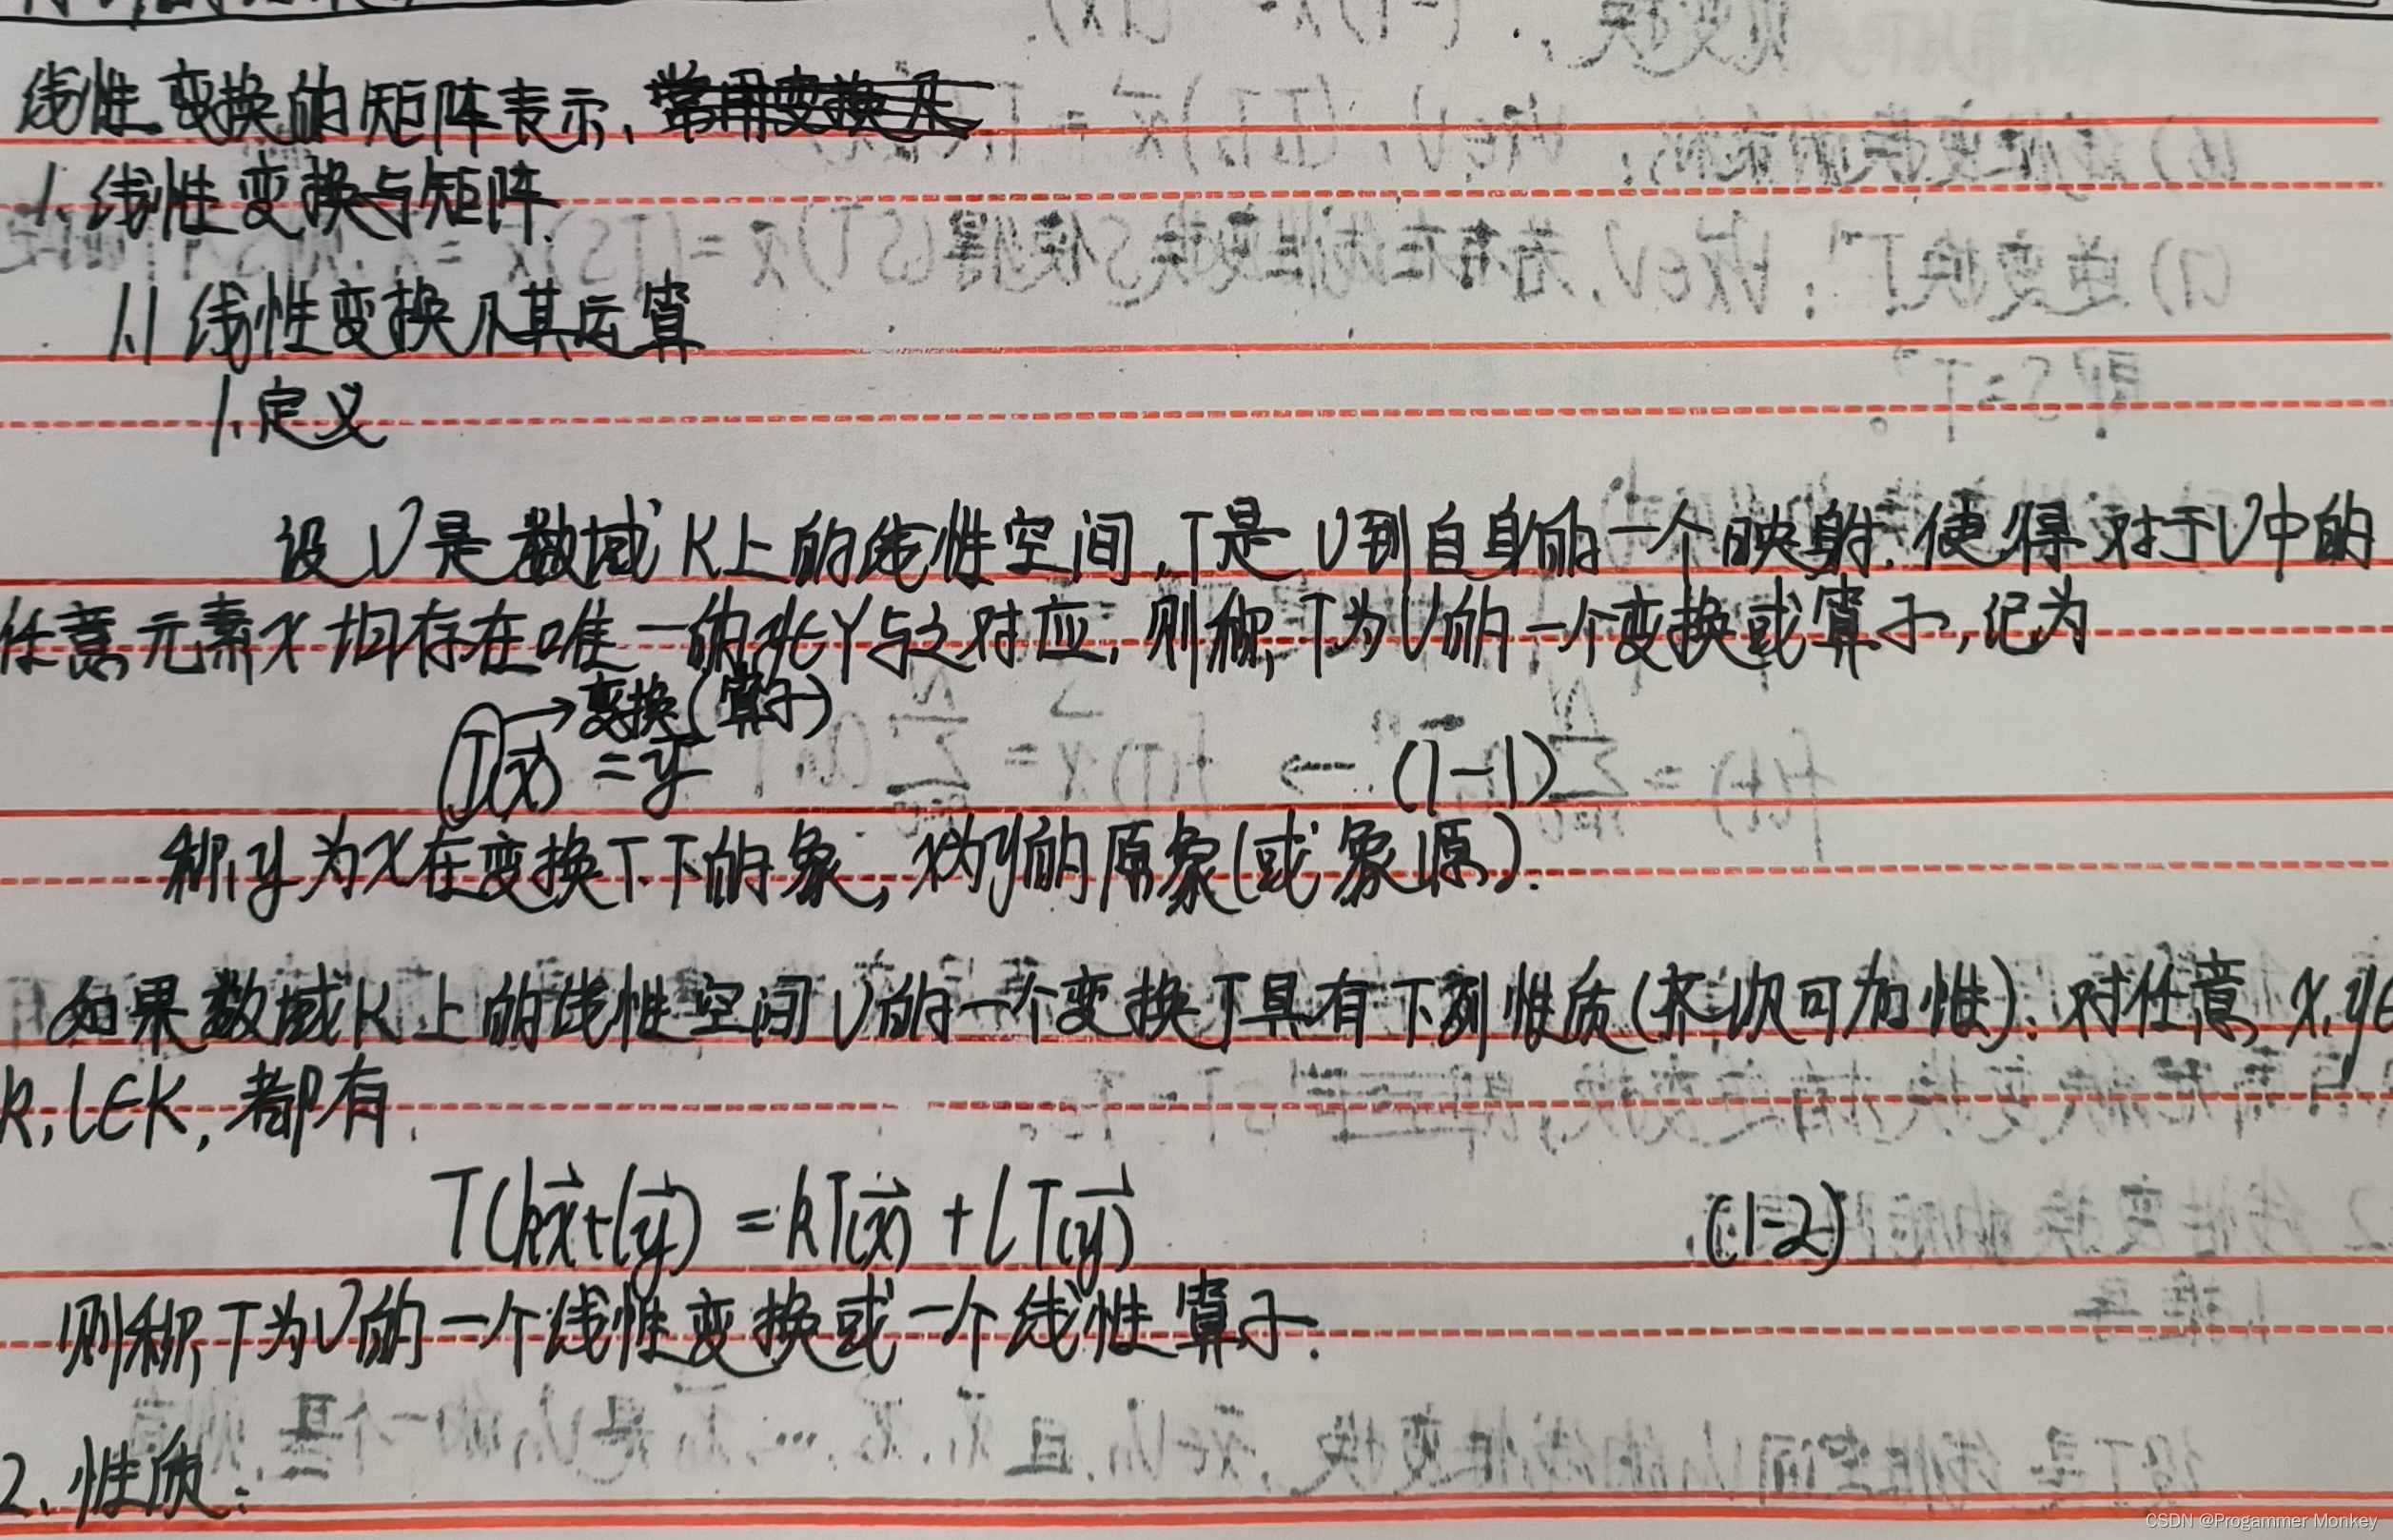 线性变换的矩阵表示、常用变换及
1.线性变换与矩阵.
1.1 线性变换及其运算
1.定义
设V是数域K上的线性空间,T是V到自身的一个映射.使得对于V中的
任意元素x均存在唯一的y∈Y与之对应,则称T为V的一个变换或算子,记为
→变换(算子)
T(x⃗) = y⃗ (1-1)
称y为x在变换T下的象,x为y的原象(或象源).
如果数域K上的线性空间V的一个变换T具有下列性质(齐次可加性):对任意x,y∈
k,l∈K,都有
T(kx⃗+ly⃗) = kT(x⃗) + lT(y⃗) (1-2)
则称T为V的一个线性变换或一个线性算子.
2.性质:
CSDN @Progammer Monkey